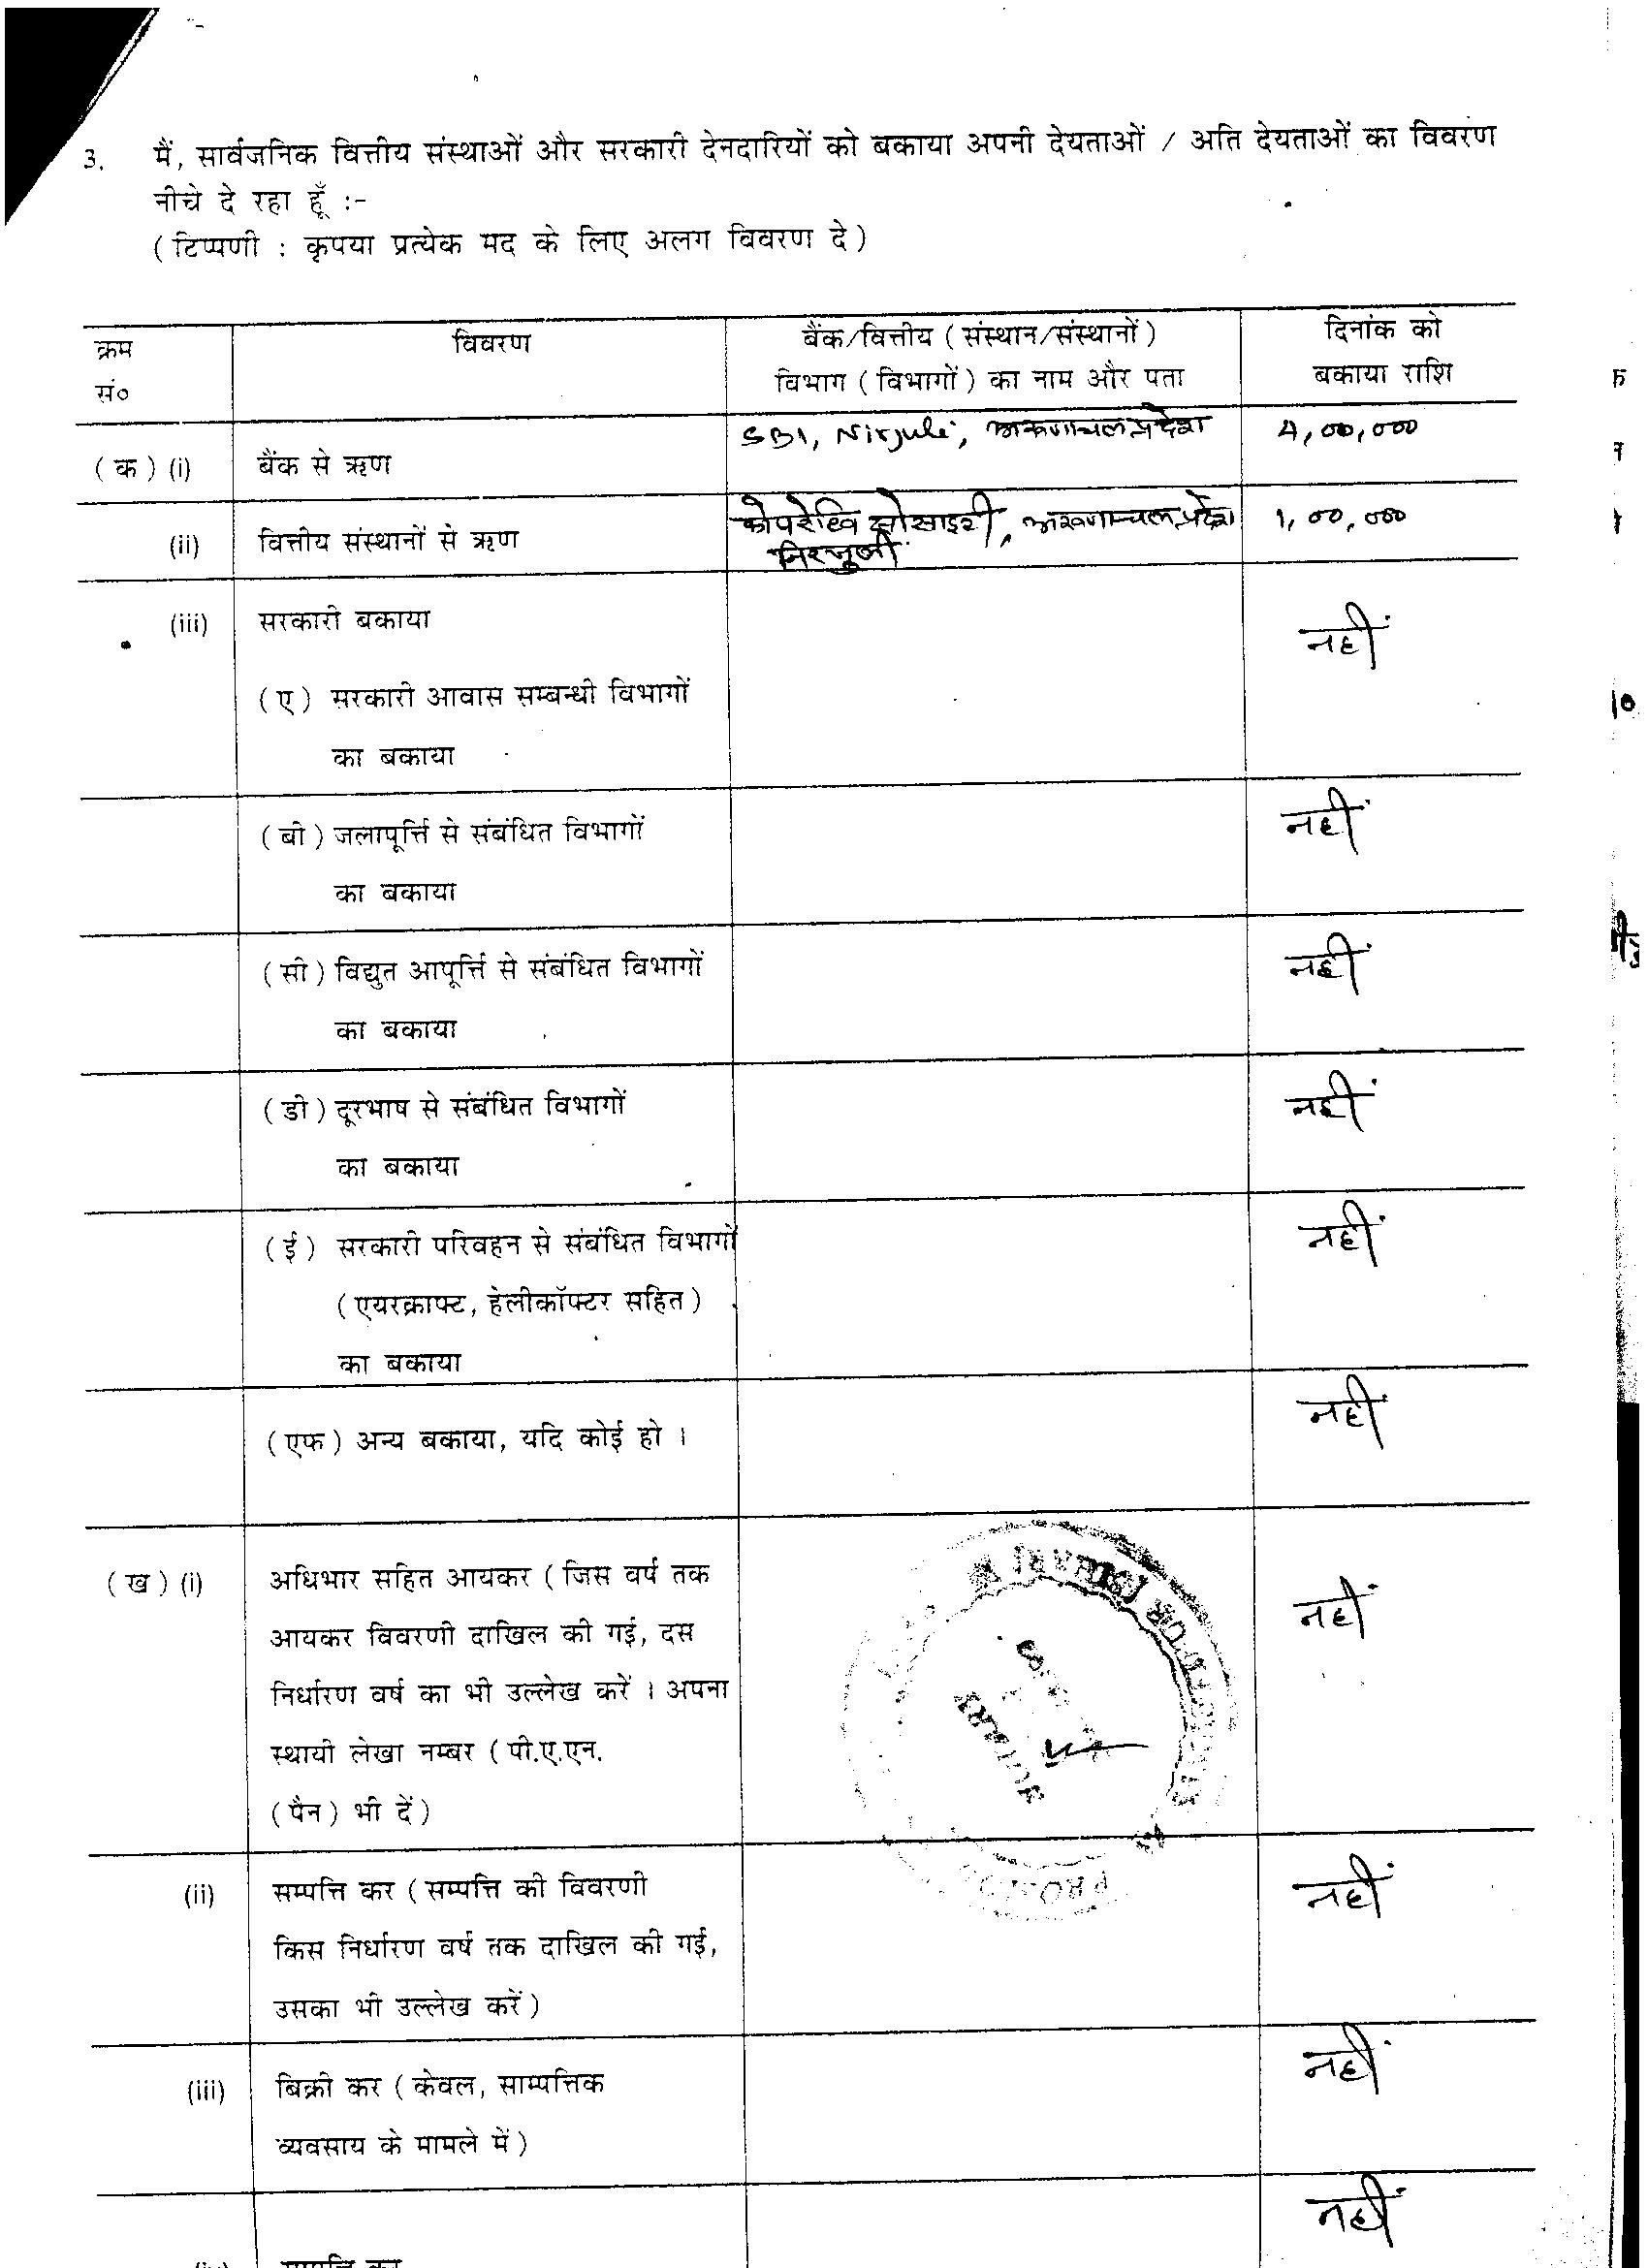 3. मैं, सार्वजनिक वित्तीय संस्थाओं और सरकारी देनदारियों को बकाया अपनी देयताओं / अति देयताओं का विवरण
नीचे दे रहा हूँ :-
(टिप्पणी : कृपया प्रत्येक मद के लिए अलग विवरण दे)
क्रम सं० विवरण बैंक/वित्तीय (संस्थान/संस्थानों) दिनांक को
विभाग (विभागों) का नाम और पता बकाया राशि
(क) (i) बैंक से ऋण SBI, Nirjuli, अरूणाचल प्रदेश 4,00,000
(ii) वित्तीय संस्थानों से ऋण सोसाइटी, अरूणाचल प्रदेश 1,00,000
निरजुली
(iii) सरकारी बकाया नहीं
(ए) सरकारी आवास सम्बन्धी विभागों
का बकाया
(बी) जलापूर्त्ति से संबंधित विभागों नहीं
का बकाया
(सी) विद्युत आपूर्त्ति से संबंधित विभागों नहीं
का बकाया
(डी) दूरभाष से संबंधित विभागों नहीं
का बकाया
(ई) सरकारी परिवहन से संबंधित विभागों नहीं
(एयरक्राफ्ट, हेलीकॉप्टर सहित)
का बकाया
(एफ) अन्य बकाया, यदि कोई हो । नहीं
(ख) (i) अधिभार सहित आयकर (जिस वर्ष तक नहीं
आयकर विवरणी दाखिल की गई, दस
निर्धारण वर्ष का भी उल्लेख करें । अपना
स्थायी लेखा नम्बर (पी.ए.एन.
(पैन) भी दें)
(ii) सम्पत्ति कर (सम्पत्ति की विवरणी नहीं
किस निर्धारण वर्ष तक दाखिल की गई,
उसका भी उल्लेख करें)
(iii) बिक्री कर (केवल, साम्पत्तिक नहीं
व्यवसाय के मामले में)
नहीं